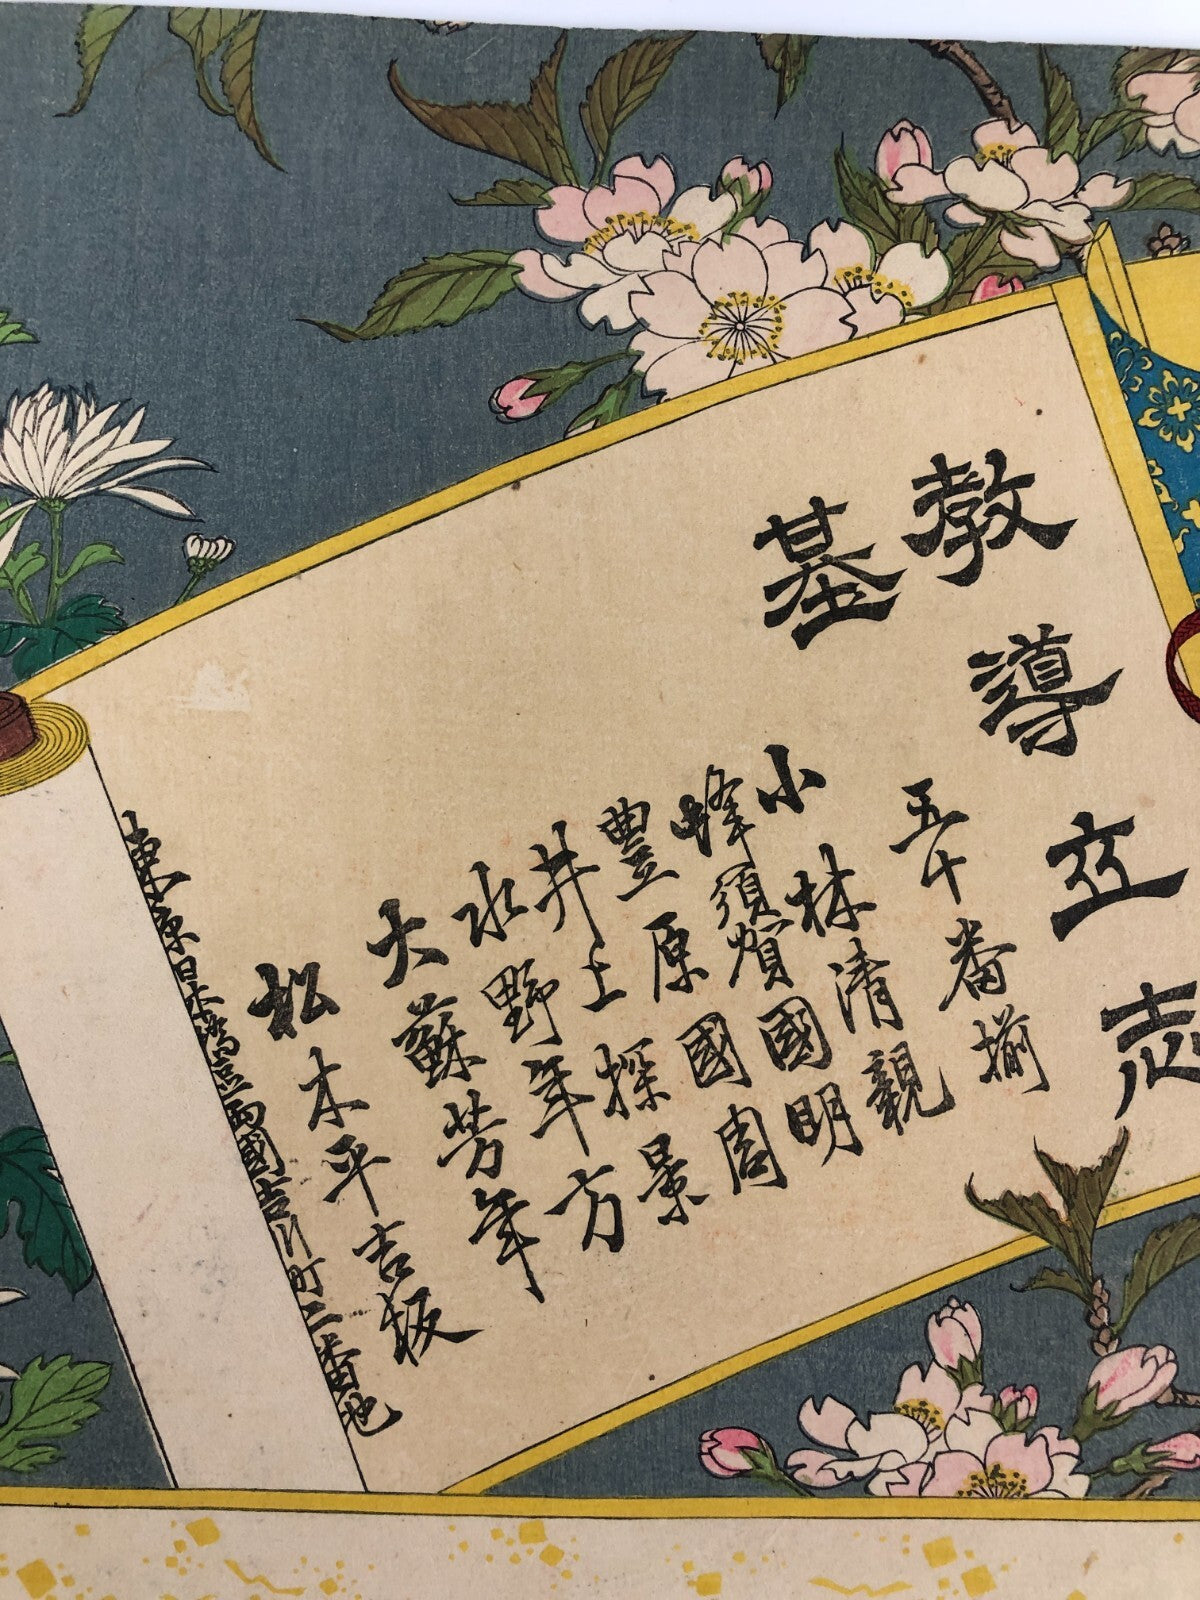 教導立志
基
五十番揃
小林清親
蜂須賀國明
豊原國周
井上探景
水野年方
大蘇芳年
松木平吉板
東京日本橋區両國吉川町二番地